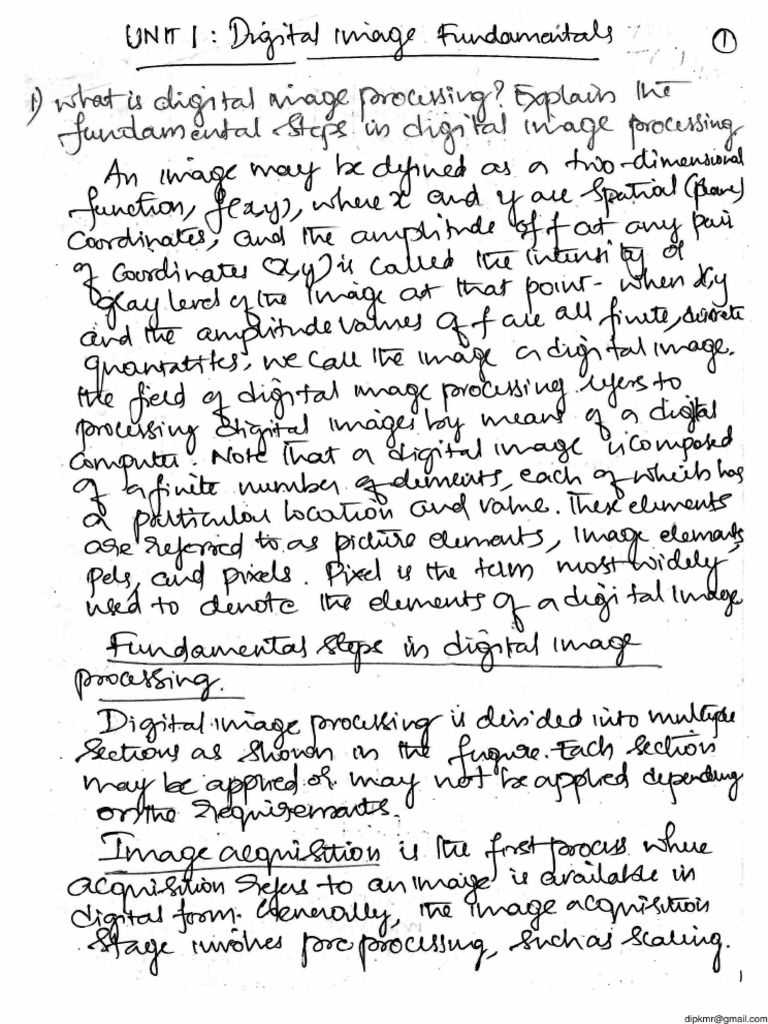 UNIT 1 : Digital image Fundamentals
1
1) What is digital image processing? Explain the
fundamental steps in digital image processing
An image may be defined as a two-dimensional
function, f(x,y), where x and y are spatial (plane)
coordinates, and the amplitude of f at any pair
of coordinates (x,y) is called the intensity of
gray level of the image at that point. when x,y
and the amplitude values of f are all finite, discrete
quantatites, we call the image a digital image.
the field of digital image processing refers to
processing digital images by means of a digital
computer. Note that a digital image is composed
of a finite number of elements, each of which has
a particular location and value. These elements
are referred to as picture elements, image elements,
pels, and pixels. Pixel is the term most widely
used to denote the elements of a digital image
Fundamental steps in digital image
processing.
Digital image processing is devided into multiple
sections as shown in the fugure. Each section
may be applied or may not be applied depending
on the requirements.
Image acquisition is the first process where
acquisition refers to an image is available in
digital form. Generally, the image acquisition
stage involves pre processing, such as scaling.
1
dipkmr@gmail.com